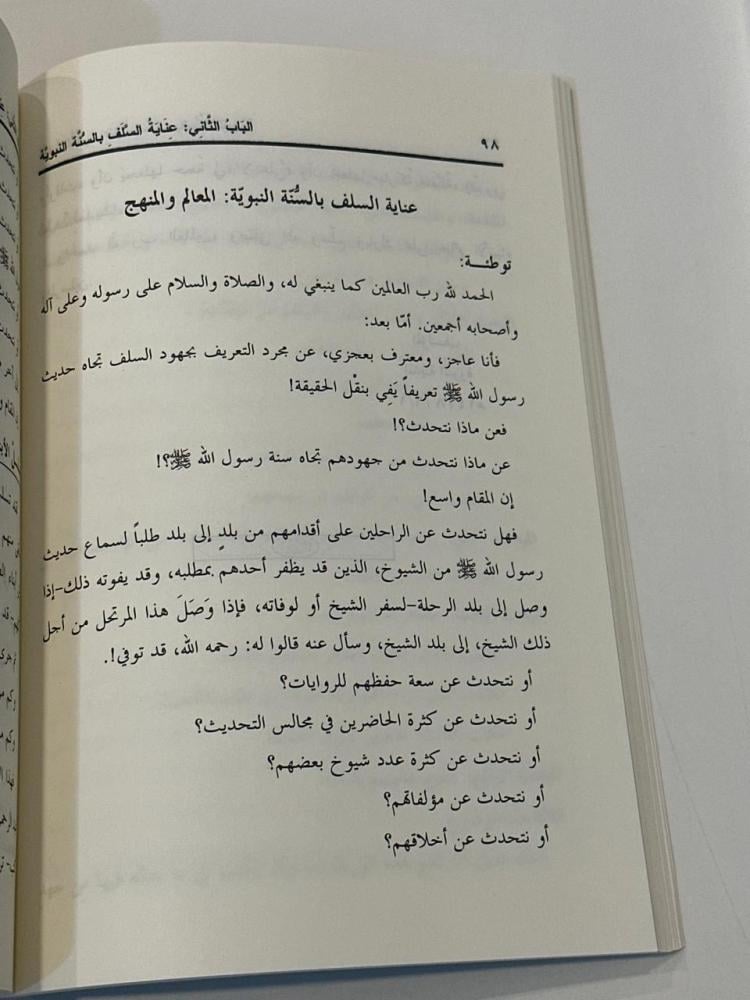 ٩٨
البَابُ الثَّانِي: عِنَايَةُ السَّلَفِ بالسُّنَّة النبويَّة
عناية السلف بالسُّنّة النبويّة: المعالم والمنهج
توطئـــة:
الحمد لله رب العالمين كما ينبغي له، والصلاة والسلام على رسوله وعلى آله
وأصحابه أجمعين. أمّا بعد:
فأنا عاجز، ومعترف بعجزي، عن مجرد التعريف بجهود السلف تجاه حديث
رسول الله ﷺ تعريفاً يَفِي بنقْل الحقيقة!
فعن ماذا نتحدث؟!
عن ماذا نتحدث من جهودهم تجاه سنة رسول الله ﷺ؟!
إن المقام واسع!
فهل نتحدث عن الراحلين على أقدامهم من بلدٍ إلى بلد طلباً لسماع حديث
رسول الله ﷺ من الشيوخ، الذين قد يظفر أحدهم بمطلبه، وقد يفوته ذلك-إذا
وصل إلى بلد الرحلة-لسفر الشيخ أو لوفاته، فإذا وَصَلَ هذا المرتحل من أجل
ذلك الشيخ، إلى بلد الشيخ، وسأل عنه قالوا له: رحمه الله، قد توفي!.
أو نتحدث عن سعة حفظهم للروايات؟
أو نتحدث عن كثرة الحاضرين في مجالس التحديث؟
أو نتحدث عن كثرة عدد شيوخ بعضهم؟
أو نتحدث عن مؤلفاتهم؟
أو نتحدث عن أخلاقهم؟